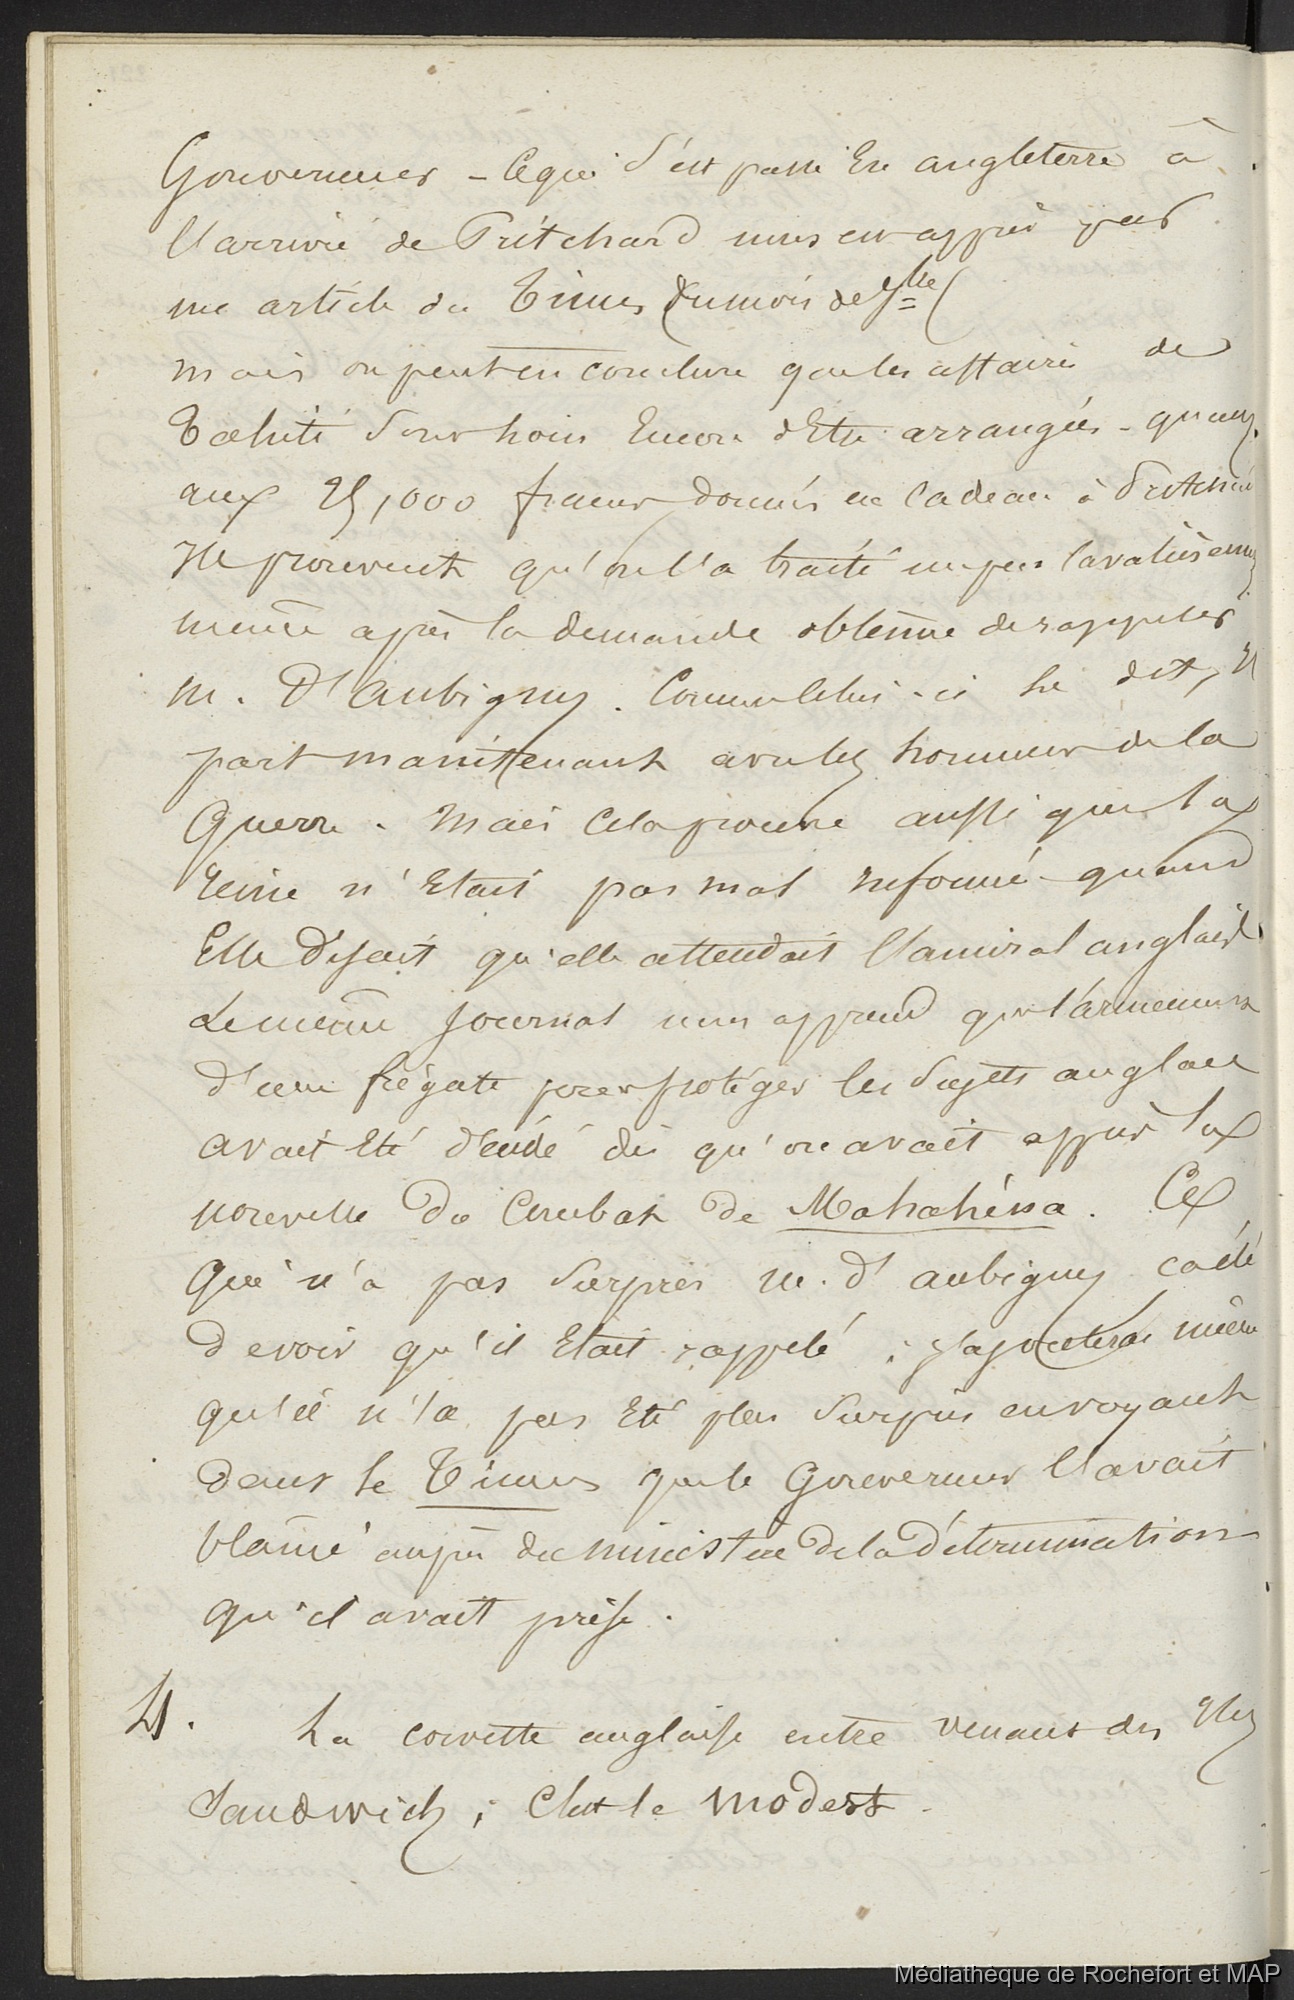 Gouverneur - Ce qui s'est passé En angleterre à
l'arrivé de Pritchard nous est appris par
une article du Times (du mois de Jlle (
mais on peut en conclure que les affaires de
Tahiti sont loin Encore d'Etre arrangées - quant
aux 25,000 francs donnés en Cadeau à Pritchard
Ils prouvent qu'on l'a traité un peu Cavalièrement
même après la demande obtenue de rappeler
M. D'Aubigny. Comme Celui-ci le dit, Il
part maintenant avec les honneurs de la
Guerre. Mais Cela prouve aussi que la
reine n'Etait pas mal Informé quand
Elle disait qu'elle attendait l'amiral anglais
Le même Journal nous apprend que l'armement
d'une frégate pour protéger les sujets anglais
avait Eté décidé dès qu'on avait appris la
nouvelle du Combat de Mahahéna. Ce
Qui n'a pas Surpris M. d'aubigny c'a été
De voir qu'il Etait rappelé ; J'ajouterai même
qu'il n'a pas Eté plus Surpris en voyant
dans le Times que le Gouverneur l'avait
blâmé auprès du ministère de la Détermination
qu'il avait prise.
4. La corvette anglaise entre venant des Iles
Sandwich ; C'est le Modest.